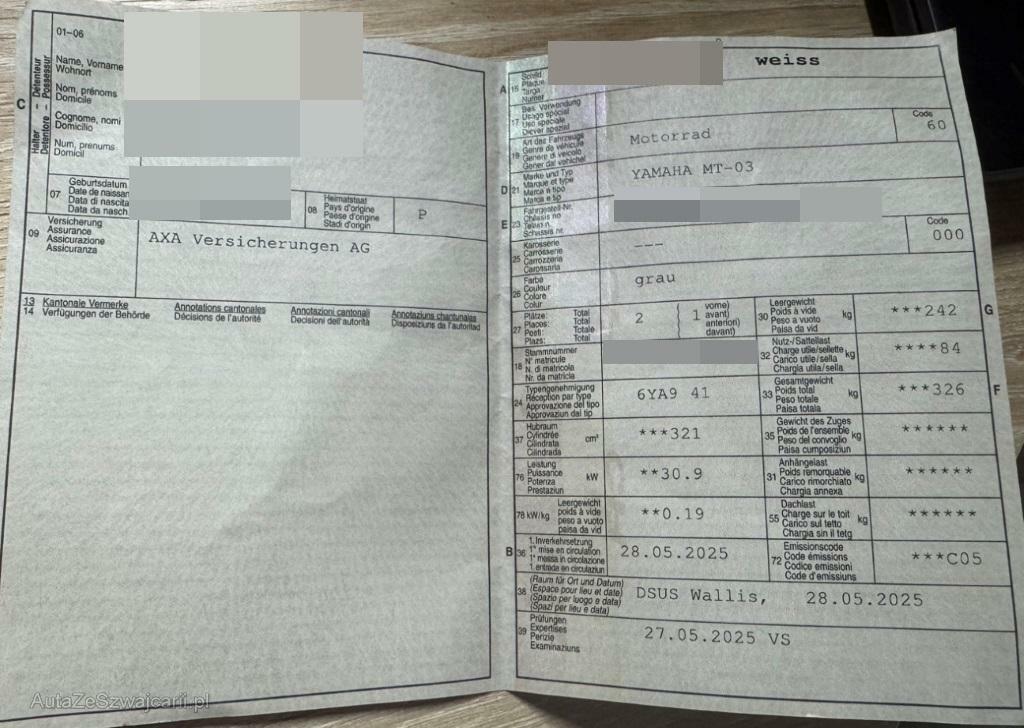 01-06
Halter - Détenteur
Detentore - Possessur
C
Name, Vorname
Wohnort
Nom, prénoms
Domicile
Cognome, nomi
Domicilio
Num, prenums
Domicil
07
Geburtsdatum
Date de naissan
Data di nascita
Data da nasch
08
Heimatstaat
Pays d'origine
Paese d'origine
Stadi d'origin
P
09
Versicherung
Assurance
Assicurazione
Assicuranza
AXA Versicherungen AG
13 Kantonale Vermerke
14 Verfügungen der Behörde
Annotations cantonales
Décisions de l'autorité
Annotazioni cantonali
Decisioni dell'autorità
Annotaziuns chantunalas
Disposiziuns da l'autoritad
A
15
Schild
Plaque
Targa
Numer
weiss
17
Bes. Verwendung
Usage spécial
Uso speciale
Diever spezial
19
Art des Fahrzeugs
Genre de véhicule
Genere di veicolo
Gener dal vehichel
Motorrad
Code
60
D
21
Marke und Typ
Marque et type
Marca e tipo
Marca e tip
YAMAHA MT-03
E
23
Fahrgestell-Nr.
Châssis no
Telaio n.
Schassis nr.
25
Karosserie
Carrosserie
Carrozzeria
Carossaria
---
Code
000
26
Farbe
Couleur
Colore
Colur
grau
27
Plätze: Total
Places: Total
Posti: Totale
Plazs: Total
2
( 1
vorne)
avant)
anteriori)
davant)
30
Leergewicht
Poids à vide
Peso a vuoto
Paisa da vid
kg
***242
G
18
Stammnummer
N° matricule
N. di matricola
Nr. da matricla
32
Nutz-/Sattellast
Charge utile/sellette
Carico utile/sella
Chargia utila/sella
kg
****84
24
Typengenehmigung
Réception par type
Approvazione del tipo
Approvaziun dal tip
6YA9 41
33
Gesamtgewicht
Poids total
Peso totale
Paisa totala
kg
***326
F
37
Hubraum
Cylindrée
Cilindrata
Cilindrada
cm³
***321
35
Gewicht des Zuges
Poids de l'ensemble
Peso del convoglio
Paisa cumposiziun
kg
******
76
Leistung
Puissance
Potenza
Prestaziun
kW
**30.9
31
Anhängelast
Poids remorquable
Carico rimorchiato
Chargia annexa
kg
******
78 kW/kg
Leergewicht
poids à vide
peso a vuoto
paisa da vid
**0.19
55
Dachlast
Charge sur le toit
Carico sul tetto
Chargia sin il tetg
kg
******
B
36
1. Inverkehrsetzung
1re mise en circulation
1a messa in circolazione
1. entrada en circulaziun
28.05.2025
72
Emissionscode
Code émissions
Codice emissioni
Code d'emissiuns
***C05
38
(Raum für Ort und Datum)
(Espace pour lieu et date)
(Spazio per luogo e data)
(Spazi per lieu e data)
DSUS Wallis, 28.05.2025
39
Prüfungen
Expertises
Perizie
Examinaziuns
27.05.2025 VS
AutaZeSzwajcarii.pl